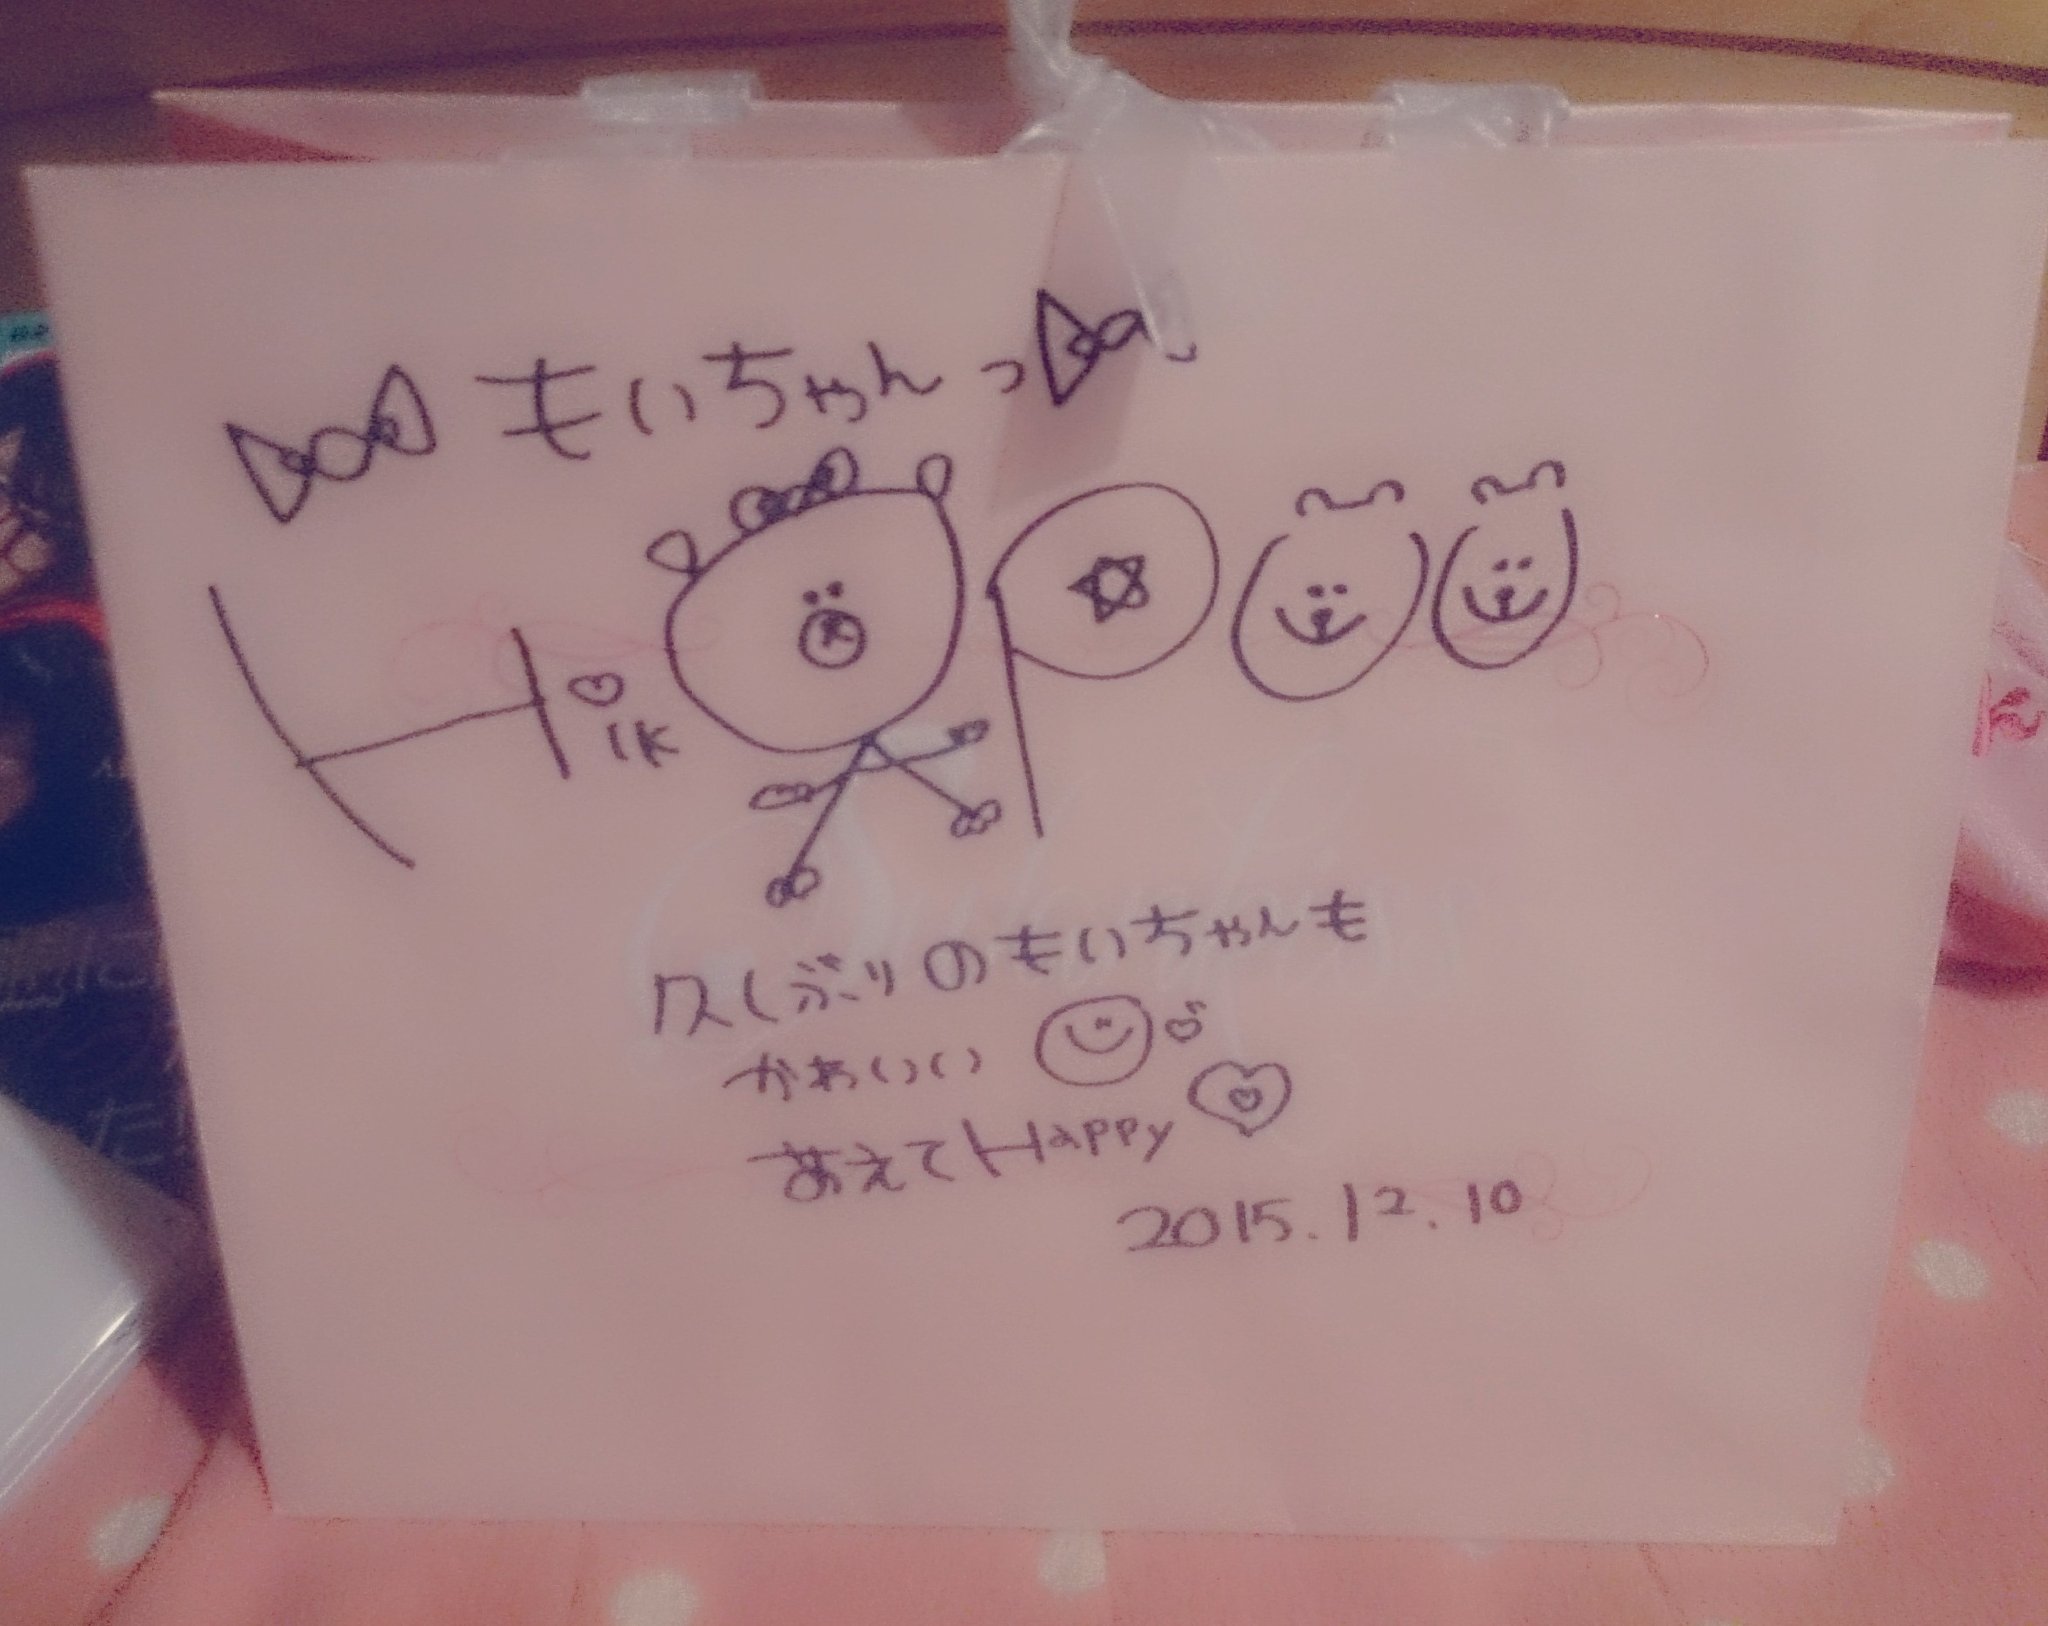 もいちゃんっ
Hi♡1K
久しぶりのもいちゃんも
かわいい
あえてHappy♡
2015.12.10